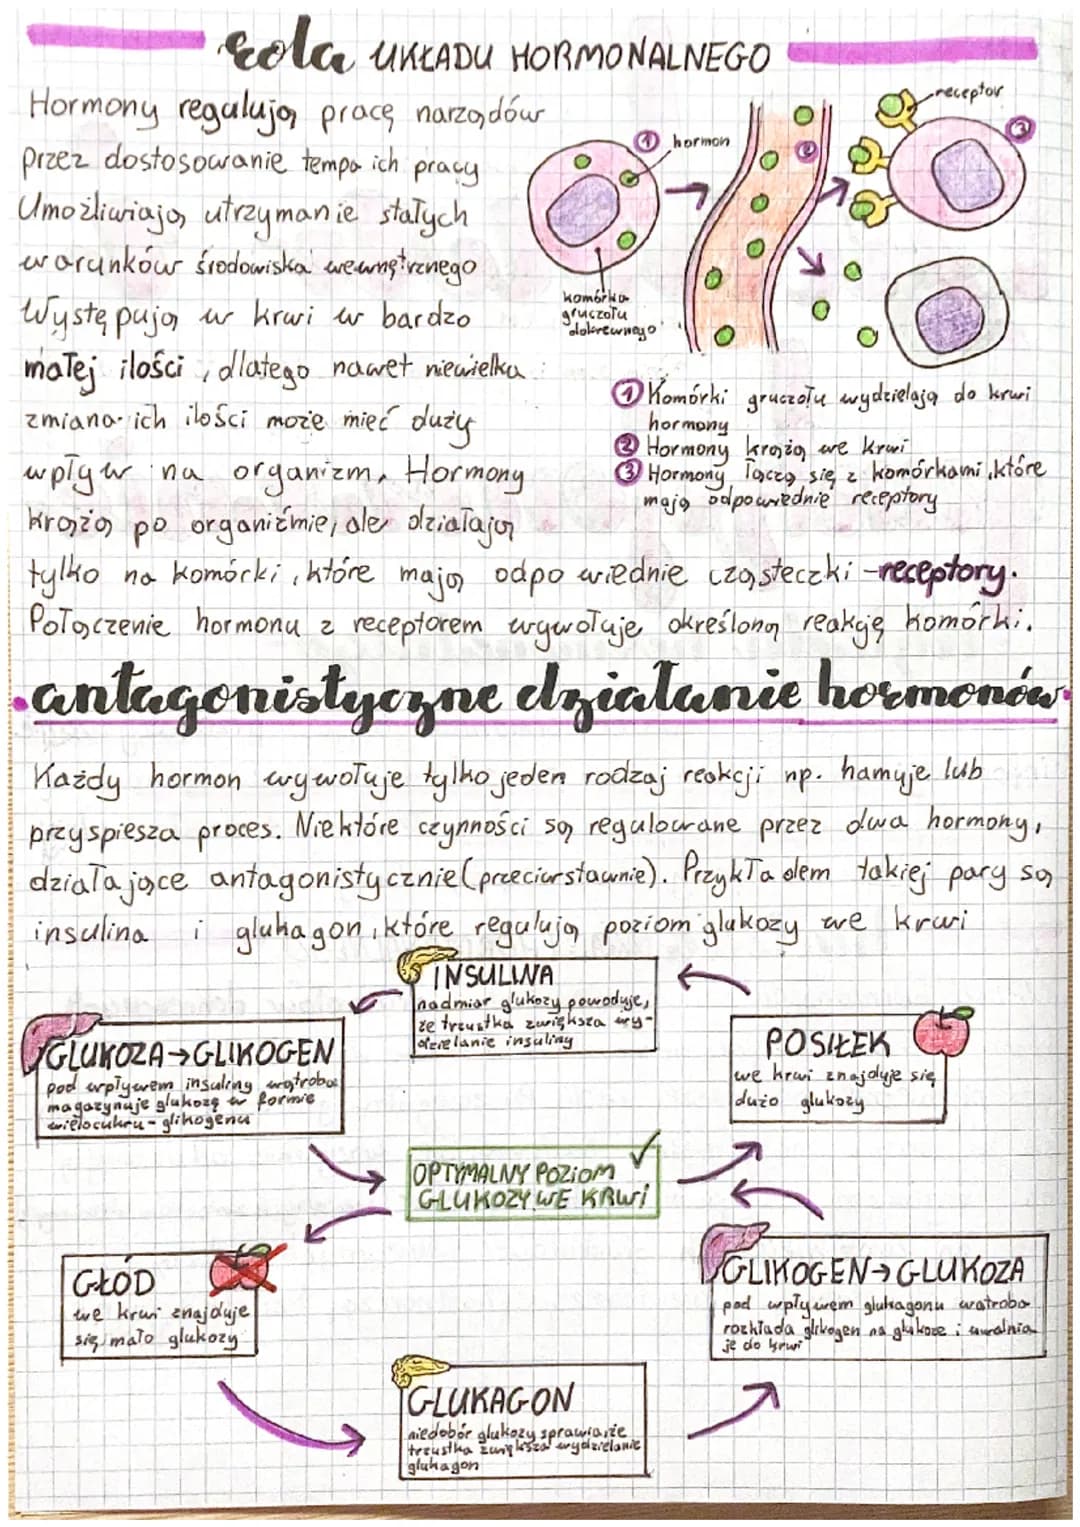 Rola UKŁADU HORMONALNEGO
Hormony regulują pracę narządów
przez dostosowanie tempa ich pracy
Umożliwiają utrzymanie stałych
warunków środowiska wewnętrznego
Występują w krwi w bardzo
małej ilości, dlatego nawet niewielka
zmiana ich ilości może mieć duży
wpływ na organizm. Hormony
krążą po organiźmie, ale działają
tylko na komórki, które mają odpowiednie cząsteczki - receptory.
Połączenie hormonu z receptorem wywołuje określoną reakcję komórki.
1 hormon
komórka
gruczołu
dokrewnego
2
receptor
3
1 Komórki gruczołu wydzielają do krwi
hormony
2 Hormony krążą we krwi
3 Hormony łączą się z komórkami, które
mają odpowiednie receptory
antagonistyczne działanie hormonów
Każdy hormon wywołuje tylko jeden rodzaj reakcji np. hamuje lub
przyspiesza proces. Niektóre czynności są regulowane przez dwa hormony,
działające antagonistycznie (przeciwstawnie). Przykładem takiej pary są
insulina i glukagon, które regulują poziom glukozy we krwi
INSULINA
nadmiar glukozy powoduje,
że trzustka zwiększa wy-
dzielanie insuliny
GLUKOZA→GLIKOGEN
pod wpływem insuliny wątroba
magazynuje glukozę w formie
wielocukru - glikogenu
POSIŁEK
we krwi znajduje się
dużo glukozy
OPTYMALNY POZIOM
GLUKOZY WE KRWI
GŁÓD
we krwi znajduje
się mało glukozy
GLIKOGEN→GLUKOZA
pod wpływem glukagonu wątroba
rozkłada glikogen na glukozę i uwalnia
je do krwi
GLUKAGON
niedobór glukozy sprawia, że
trzustka zwiększa wydzielanie
glukagon